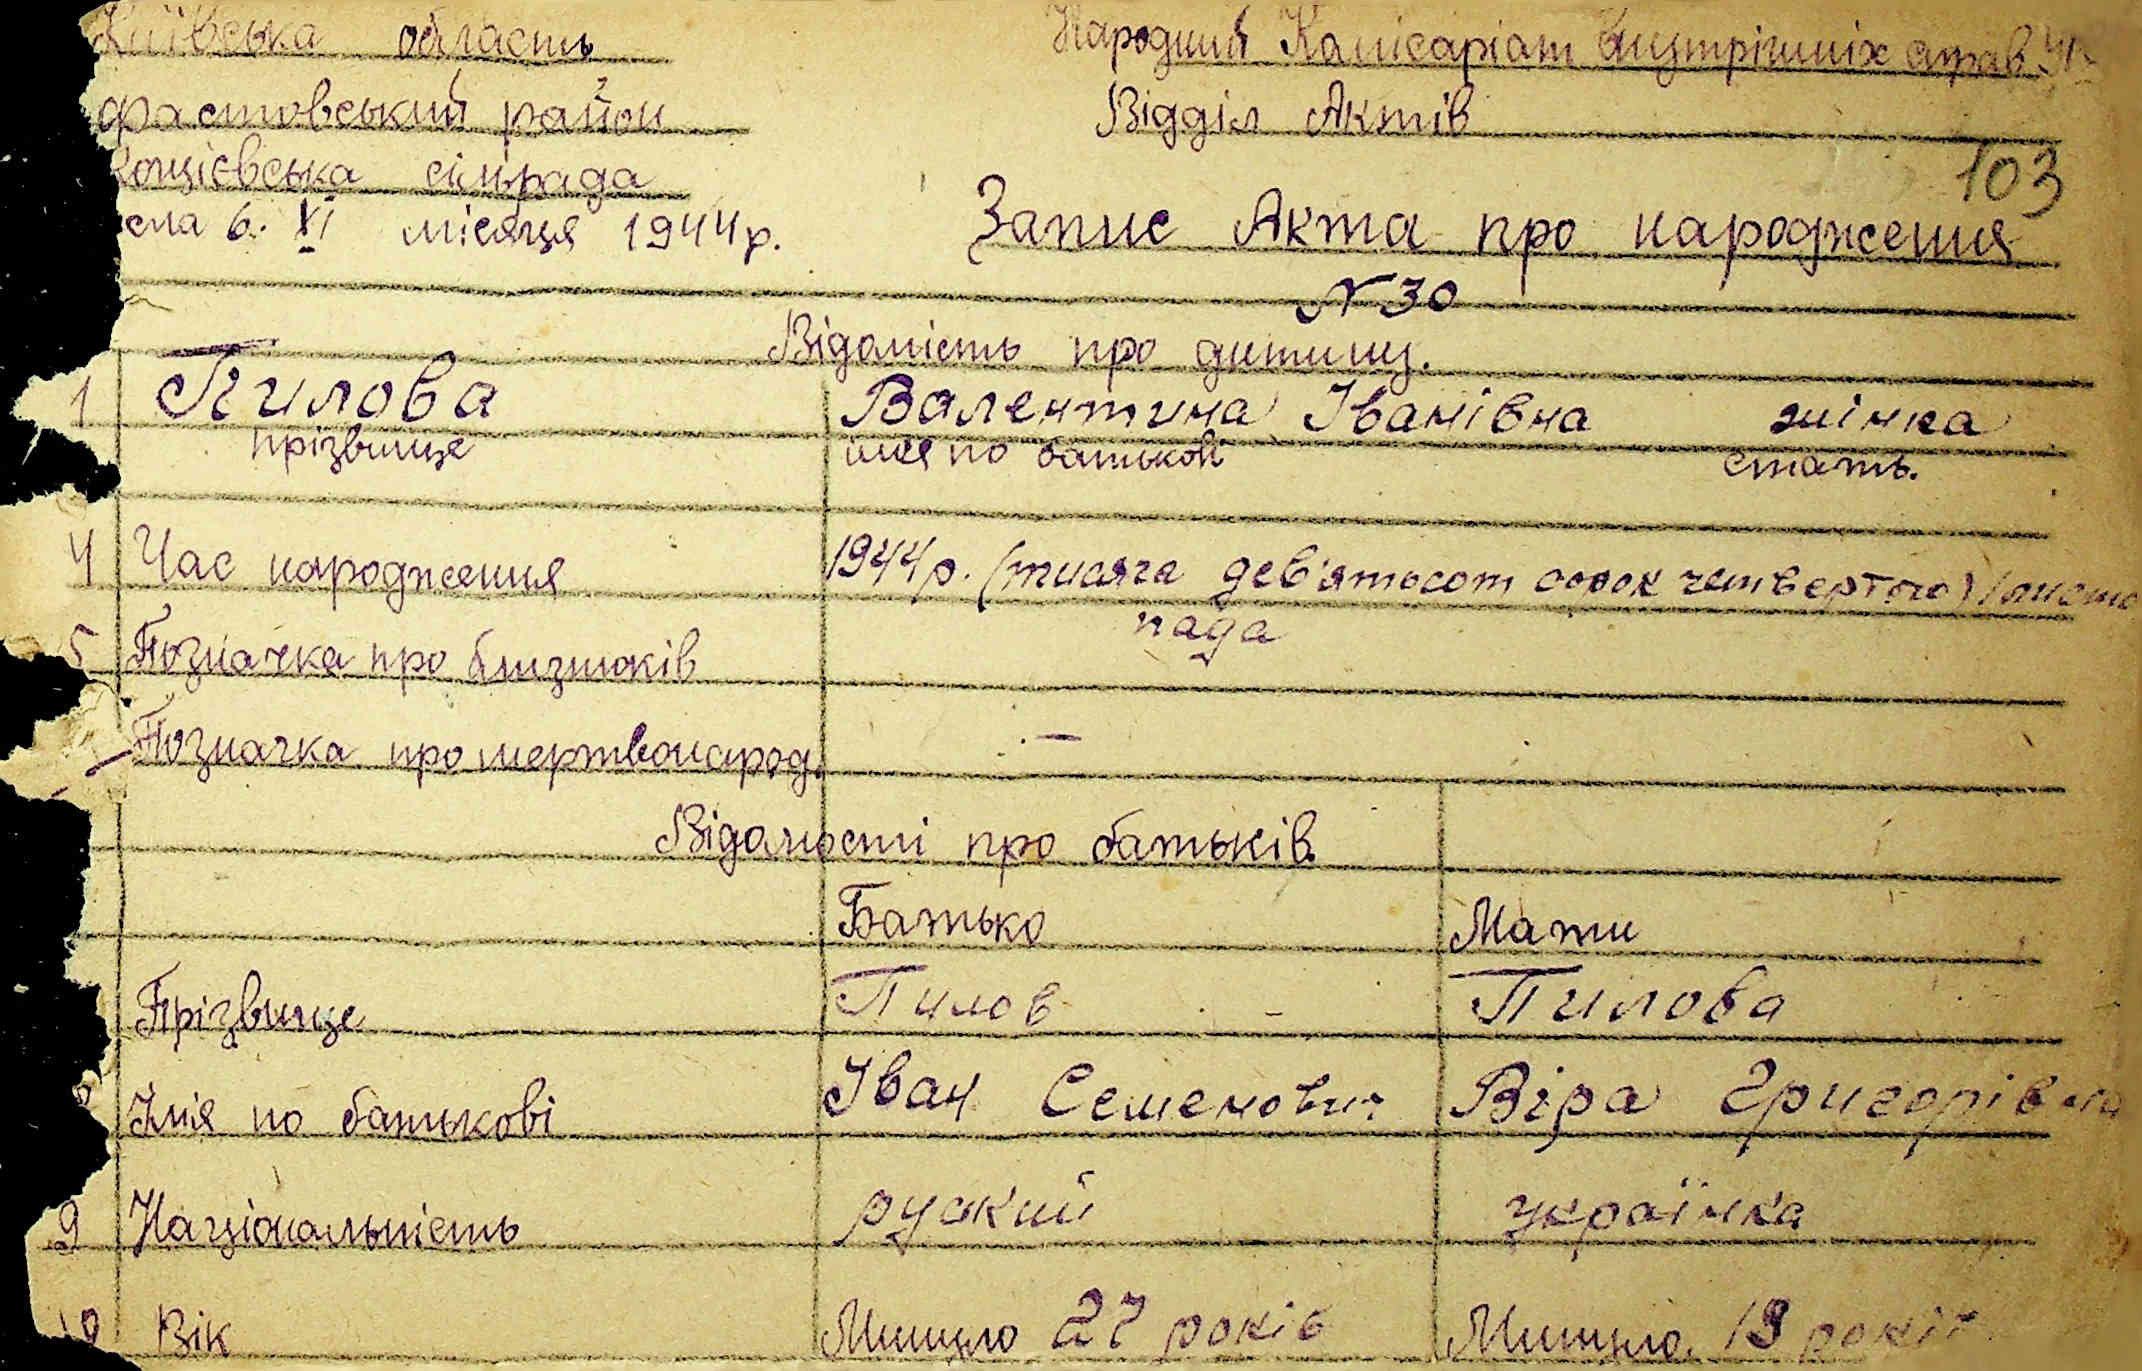 Київська область
Народний Комісаріат внутрішніх справ
Фастовський район
Відділ Актів
сільрада
103
6. XI місяця 1944р.
Запис Акта про народження
N 30
Відомість про дитину.
1 Пилова Валентина Іванівна жінка
прізвище імя по батькові стать.
4 Час народження 1944р. (тисяча дев'ятьсот сорок четвертого) 1 листо
пада
5 Позначка про близнюків
Позначка про мертвонарод. —
Відомості про батьків.
Батько Мати
Прізвище Пилов - Пилова
Імя по батькові Іван Семенович Віра Григорівна
9 Національність руский українка
10 Вік Минуло 27 років Минуло. 19 років